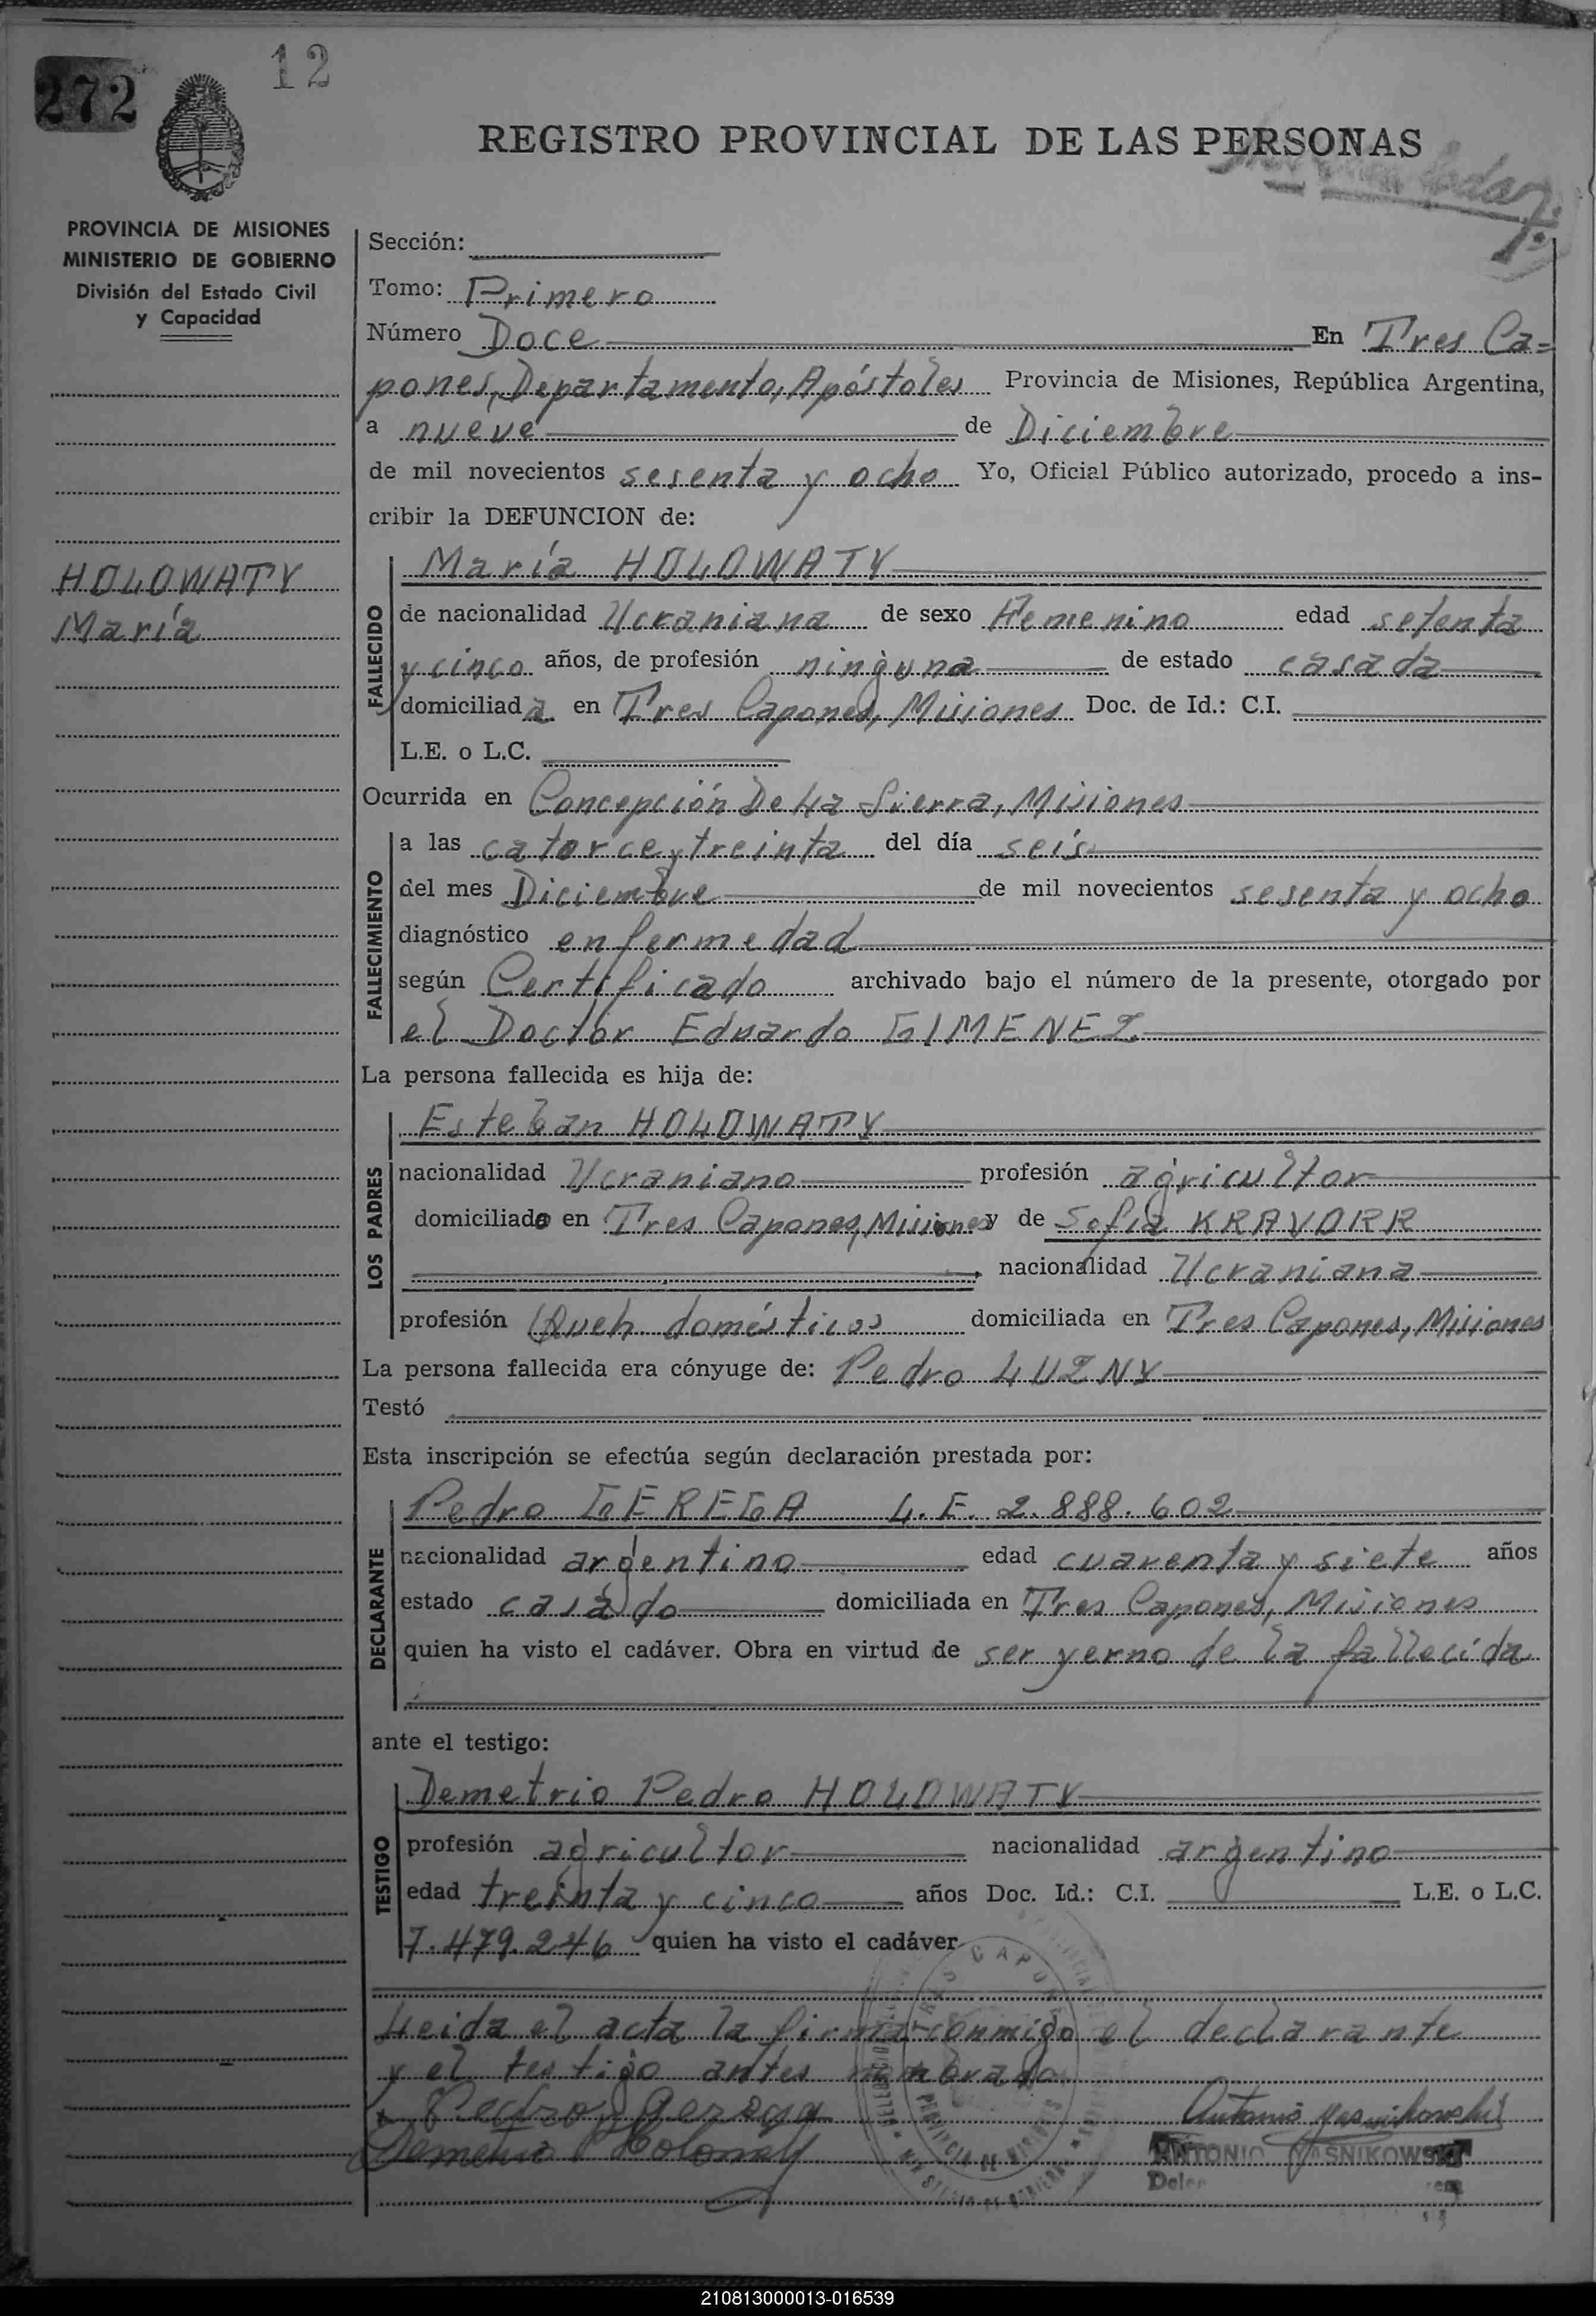 272
12
REGISTRO PROVINCIAL DE LAS PERSONAS
PROVINCIA DE MISIONES
MINISTERIO DE GOBIERNO
División del Estado Civil
y Capacidad
HOLOWATY
María
Sección:
Tomo: Primero
Número Doce En Tres Ca=
pones, Departamento, Apóstoles Provincia de Misiones, República Argentina,
a nueve de Diciembre
de mil novecientos sesenta y ocho Yo, Oficial Público autorizado, procedo a ins-
cribir la DEFUNCION de:
FALLECIDO
María HOLOWATY
de nacionalidad Ucraniana de sexo Femenino edad setenta
y cinco años, de profesión ninguna de estado casada
domiciliada en Tres Capones, Misiones Doc. de Id.: C.I.
L.E. o L.C.
Ocurrida en Concepción De La Sierra, Misiones
FALLECIMIENTO
a las catorce y treinta del día seis
del mes Diciembre de mil novecientos sesenta y ocho
diagnóstico enfermedad
según Certificado archivado bajo el número de la presente, otorgado por
el Doctor Eduardo GIMENEZ
La persona fallecida es hija de:
LOS PADRES
Esteban HOLOWATY
nacionalidad Ucraniano profesión agricultor
domiciliado en Tres Capones, Misiones y de Sofia KRAVORR
nacionalidad Ucraniana
profesión Queh. domésticos domiciliada en Tres Capones, Misiones
La persona fallecida era cónyuge de: Pedro LUZNY
Testó
Esta inscripción se efectúa según declaración prestada por:
DECLARANTE
Pedro GEREGA L.E. 2.888.602
nacionalidad argentino edad cuarenta y siete años
estado casado domiciliada en Tres Capones, Misiones
quien ha visto el cadáver. Obra en virtud de ser yerno de la fallecida
ante el testigo:
TESTIGO
Demetrio Pedro HOLOWATY
profesión agricultor nacionalidad argentino
edad treinta y cinco años Doc. Id.: C.I. L.E. o L.C.
7.479.246 quien ha visto el cadáver
Leida el acta la firma conmigo el declarante
y el testigo antes nombrado
Pedro Gerega
Antonio Yasnikowski
ANTONIO YASNIKOWSKI
210813000013-016539